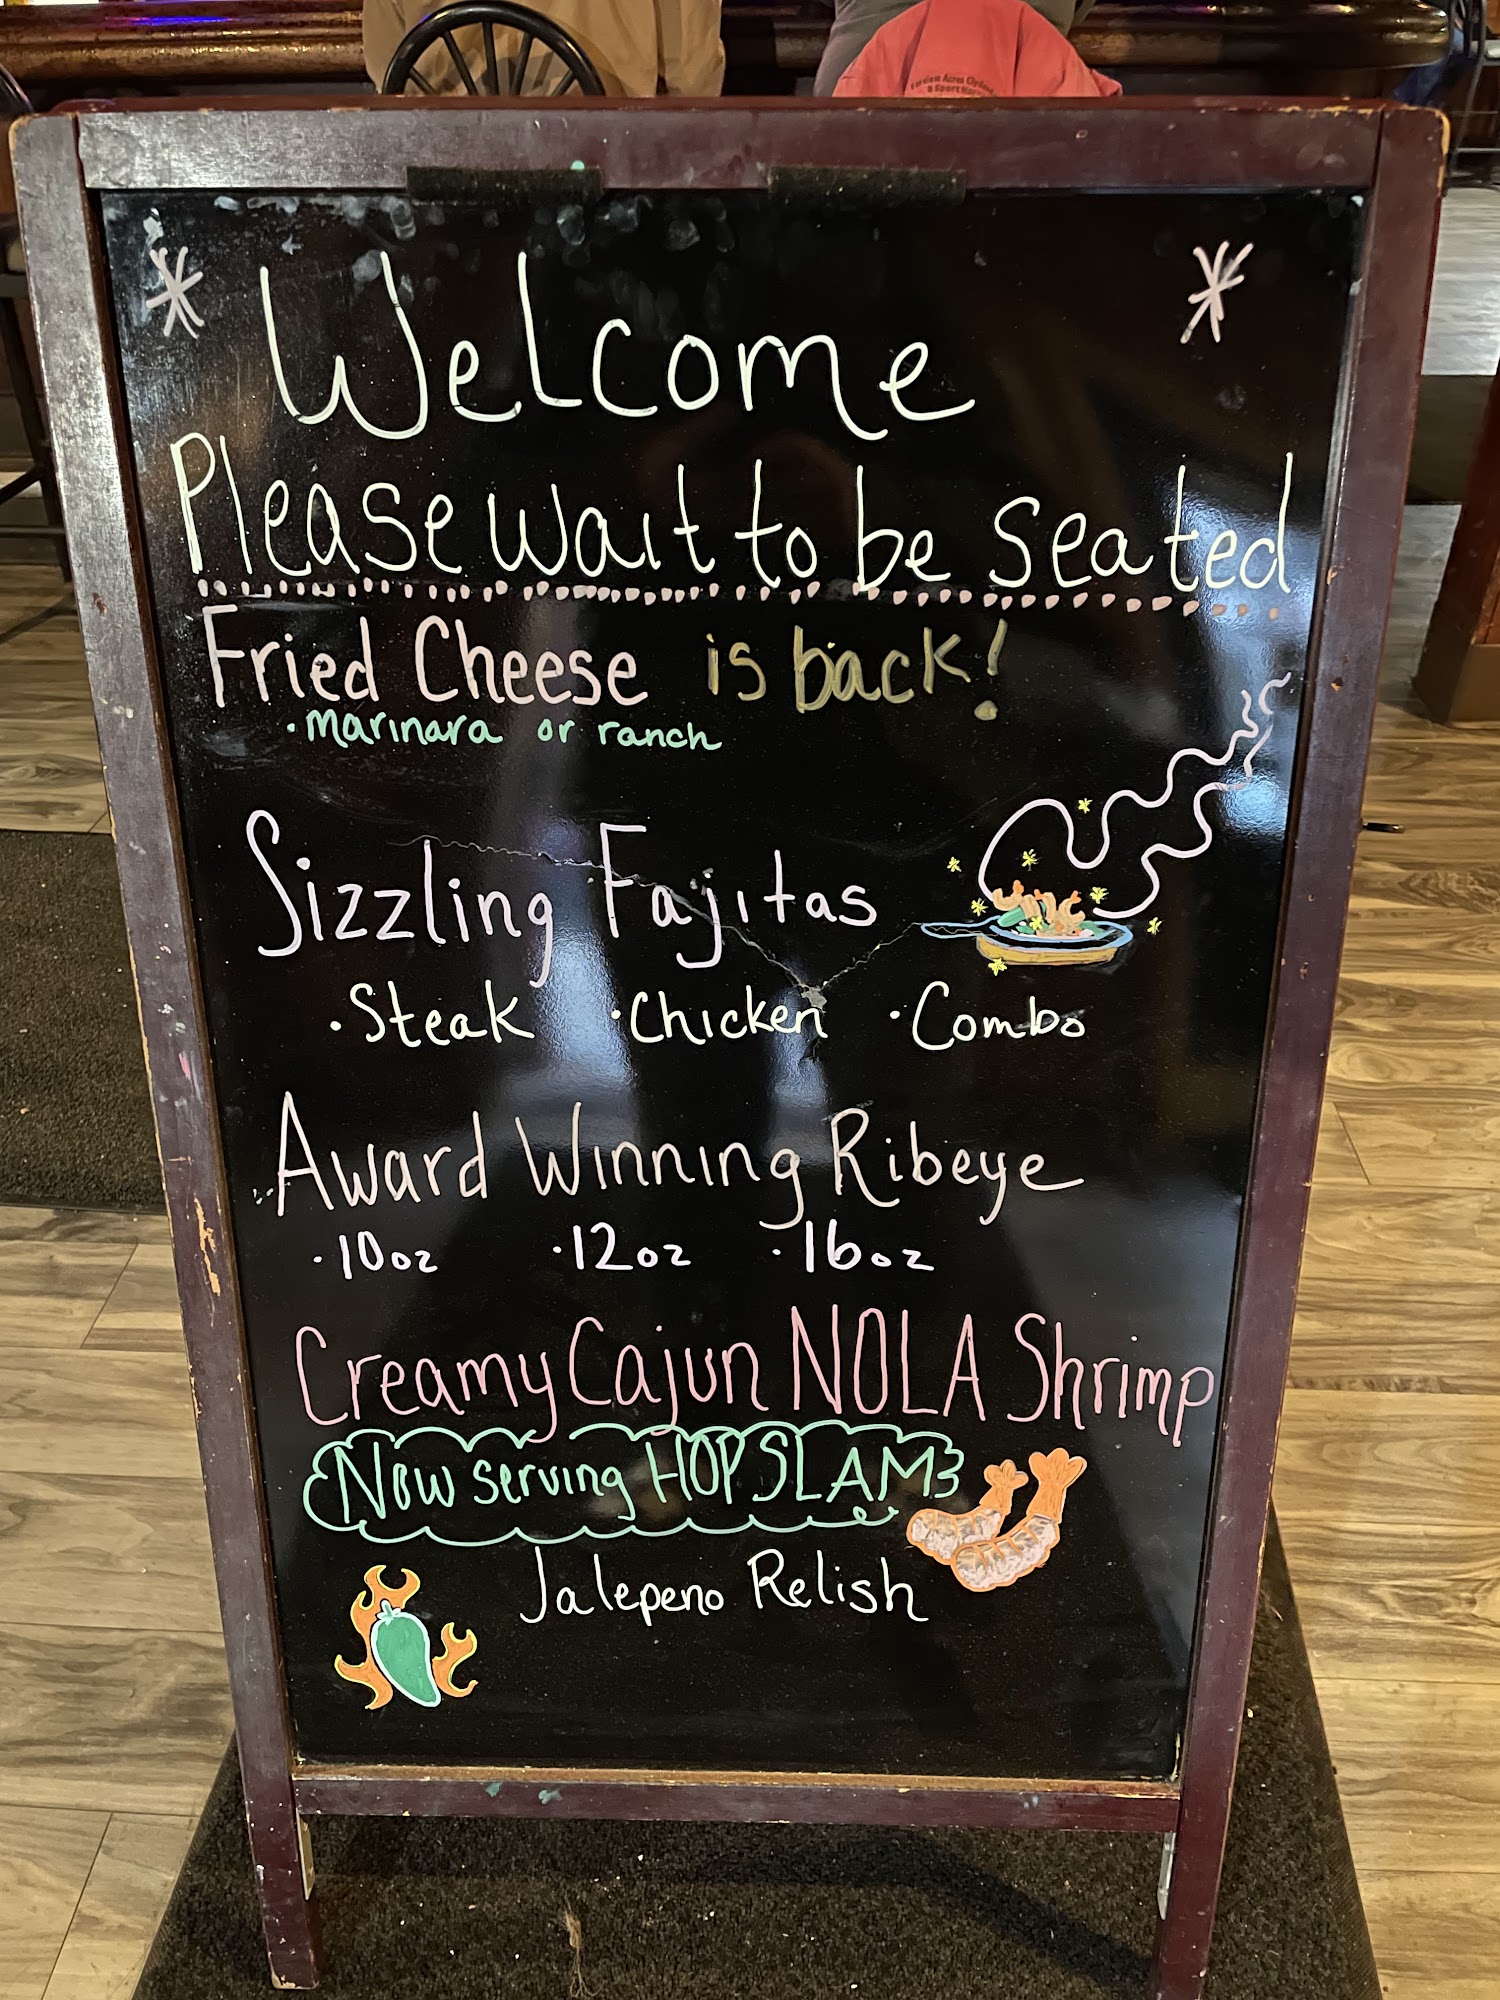 * Welcome *
Please wait to be seated
Fried Cheese is back!
• marinara or ranch
Sizzling Fajitas
• Steak • Chicken • Combo
Award Winning Ribeye
• 10oz • 12oz • 16oz
Creamy Cajun NOLA Shrimp
Now serving HOPSLAM
Jalepeno Relish